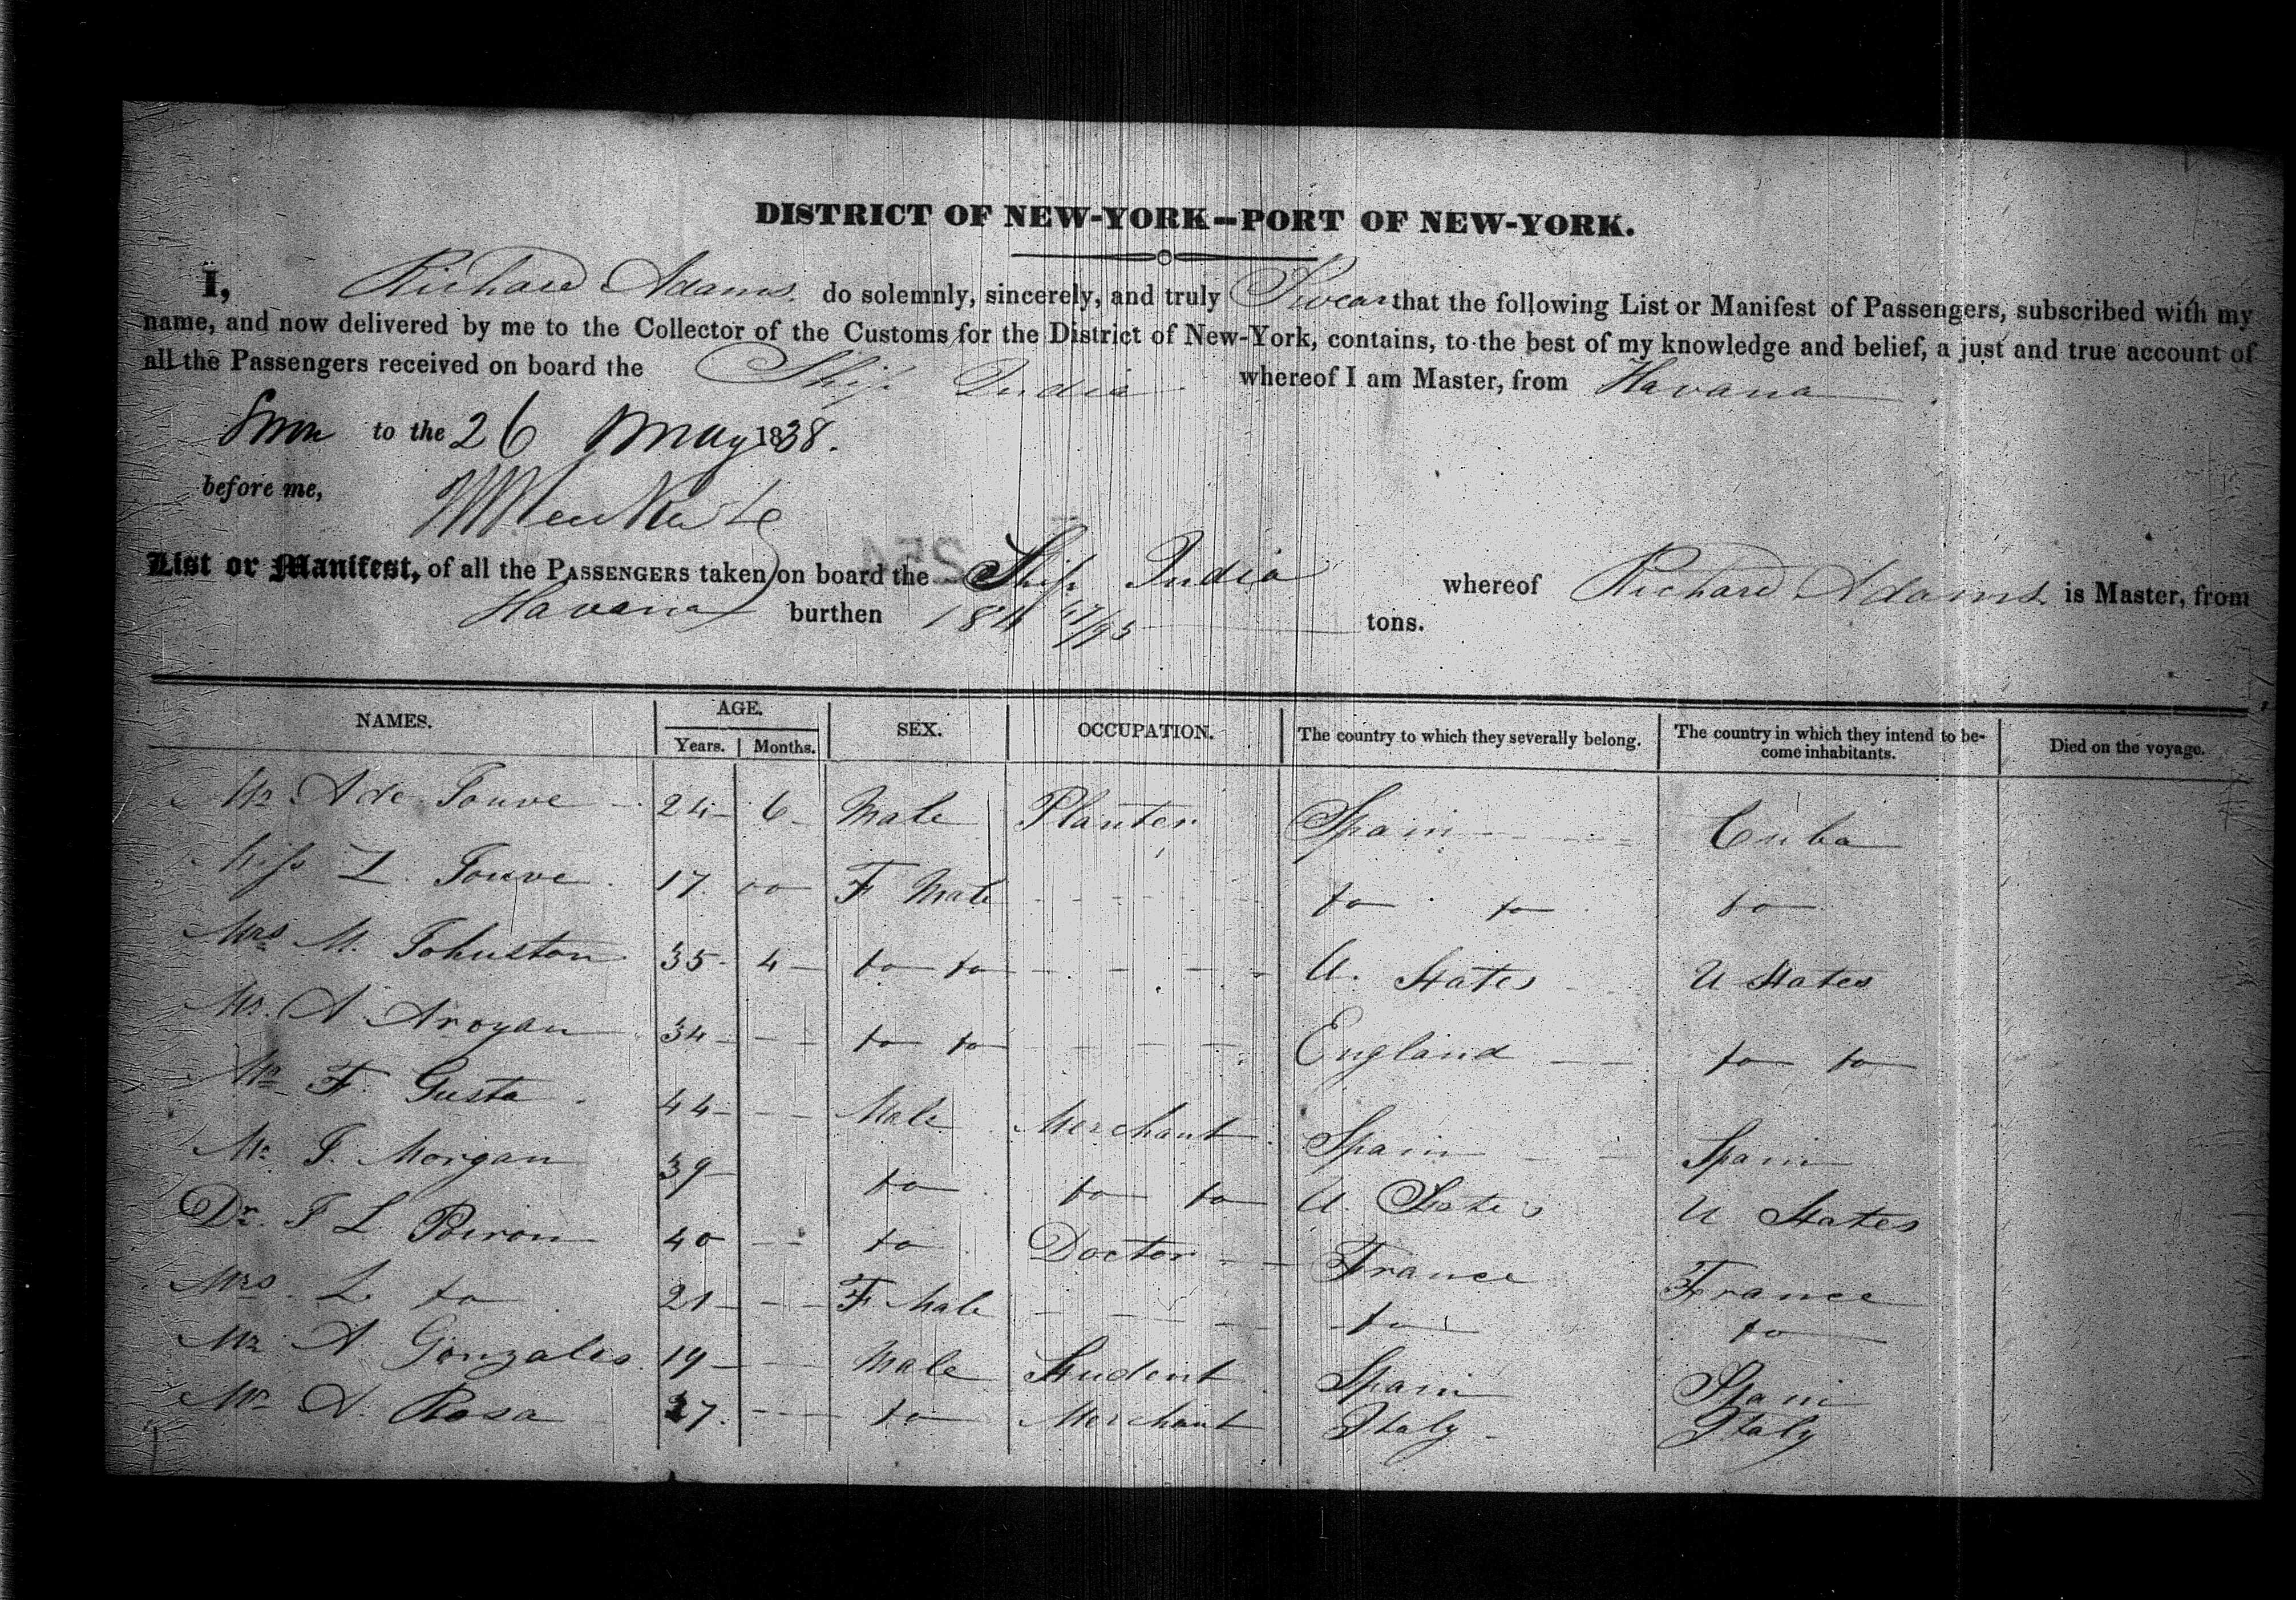 DISTRICT OF NEW-YORK—PORT OF NEW-YORK.
I, Richard Adams do solemnly, sincerely, and truly Swear that the following List or Manifest of Passengers, subscribed with my
name, and now delivered by me to the Collector of the Customs for the District of New-York, contains, to the best of my knowledge and belief, a just and true account of
all the Passengers received on board the Ship India whereof I am Master, from Havana
Sworn to the 26 May 1838.
before me,
List or Manifest, of all the PASSENGERS taken on board the Ship India whereof Richard Adams is Master, from
Havana burthen tons.
NAMES. AGE. SEX. OCCUPATION. The country to which they severally belong. The country in which they intend to be-
come inhabitants. Died on the voyage.
Years. Months.
Mr A de Touve 24 6 Male Planter Spain Cuba
Miss L. Touve 17 00 F Male do do do
Mrs M. Johnston 35 4 do do U. States U States
A 34 do do England do do
Mr F. Gusta 44 Male Merchant Spain Spain
Mr J. Morgan 39 do do do U. States U States
Dr. J L Poiron 40 do Doctor France France
Mrs. L do 21 F Male do do
Mr A Gonzales 19 Male Student Spain Spain
Mr A. Rosa 27. do Merchant Italy Italy